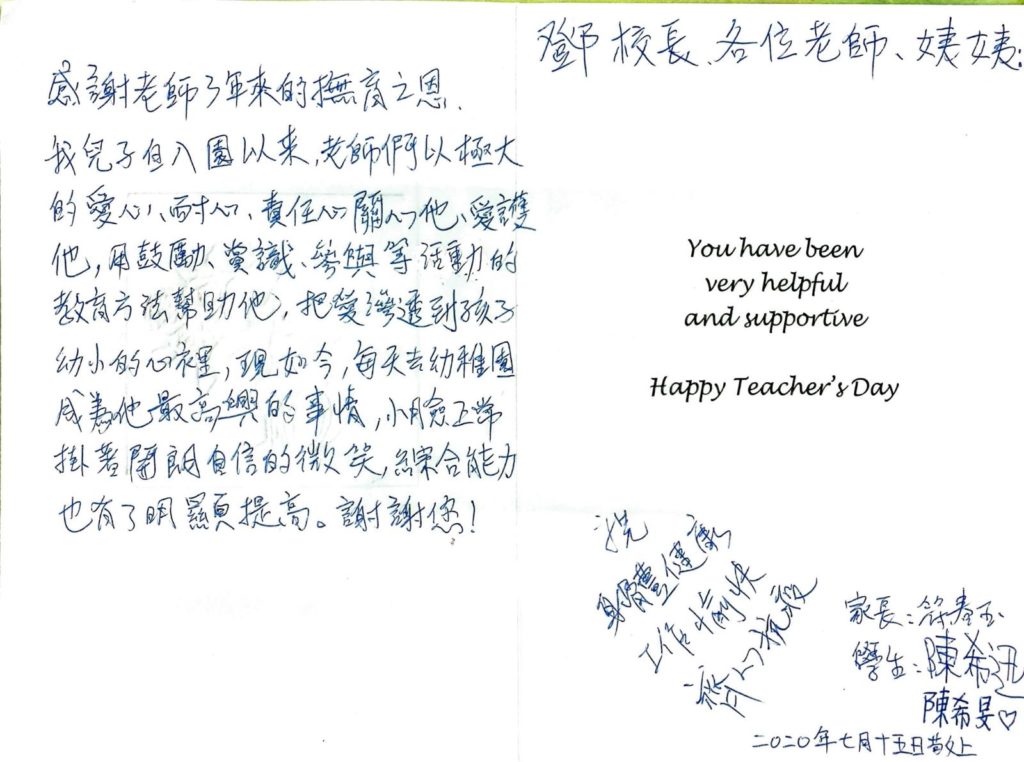 鄧校長、各位老師、姨姨:
感謝老師3年來的撫育之恩.
我兒子自入園以來,老師們以極大
的愛心、耐心、責任心關心他、愛護
他,用鼓勵、賞識、參與等活動的
教育方法幫助他,把愛滲透到孩子
幼小的心裡,現如今,每天去幼稚園
成為他最高興的事情,小臉上常
掛著開朗自信的微笑,綜合能力
也有了明顯提高。謝謝您!
You have been
very helpful
and supportive
Happy Teacher's Day
祝
身體健康
工作愉快
齊心抗疫
家長:
學生:陳希
陳希旻♡
二〇二〇年七月十五日敬上